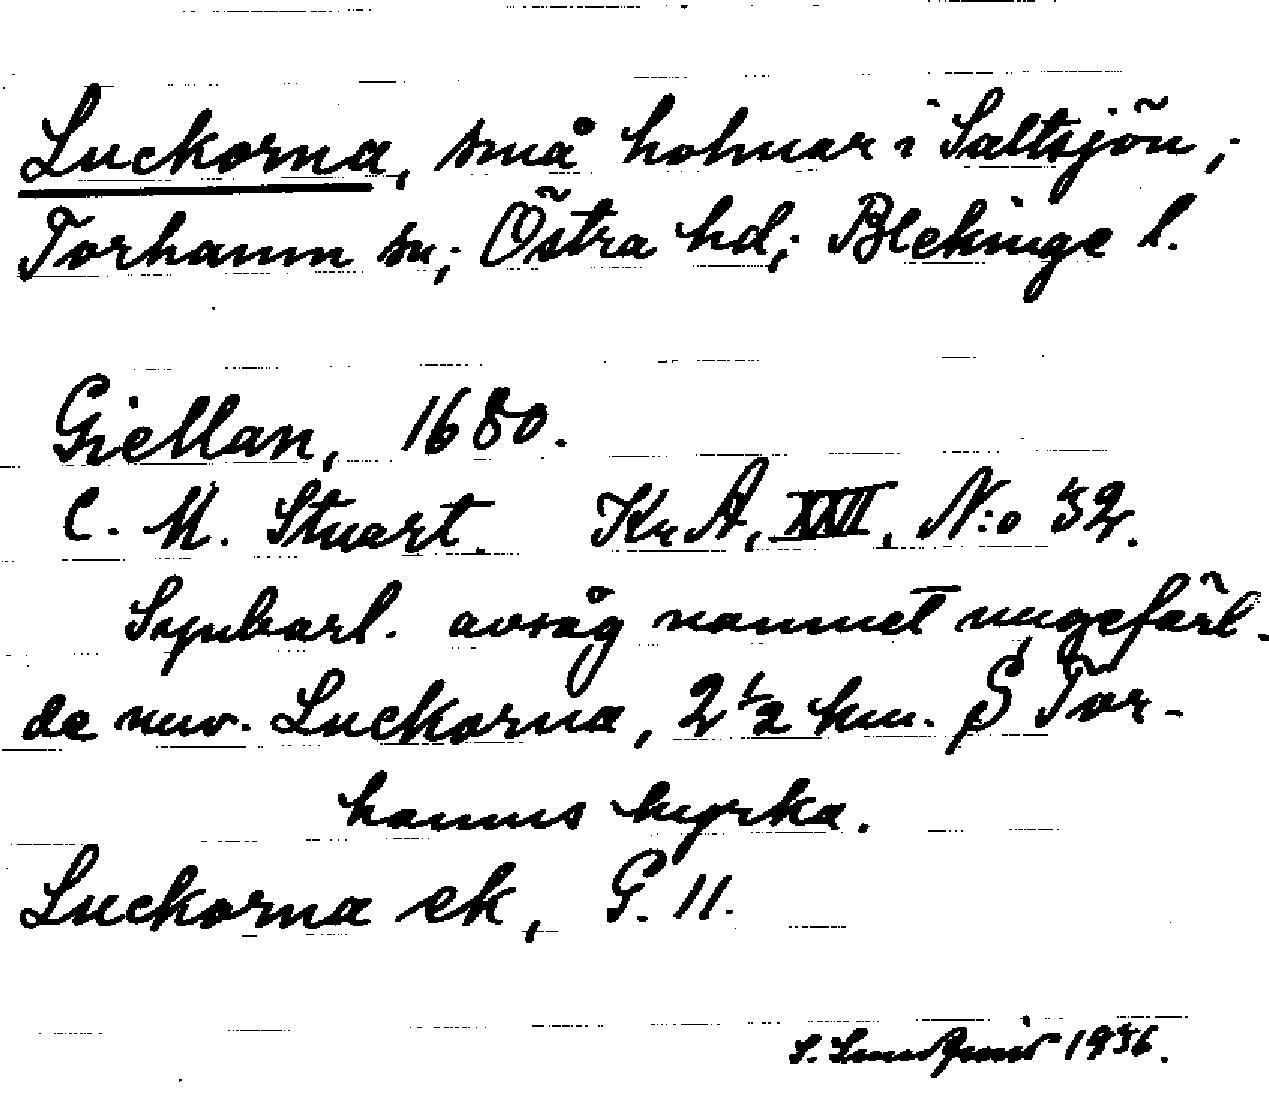 Luckorna, små holmar i Saltsjön;
Torhamn sn; Östra hd; Blekinge l.
Giellan, 1680.
C. M. Stuart. Kr A, XXII, N:o 32.
Synbarl. avsåg namnet ungefärl.
de nuv. Luckorna, 2 1/2 km. S Tor-
hamns kyrka.
Luckorna ek, G. 11.
1936.